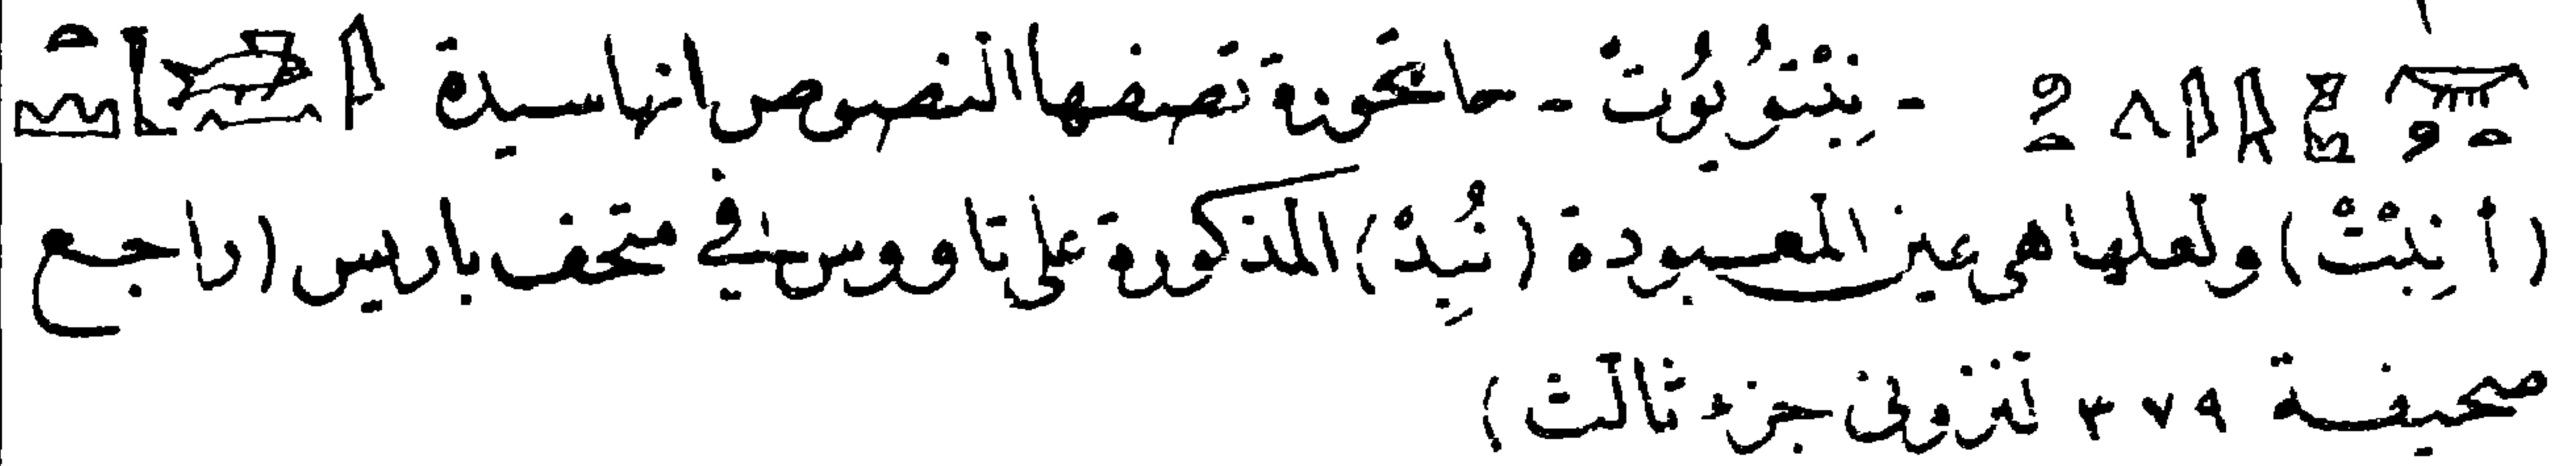 - نِبْتُوُيُوتْ - حاتحورة تصفها النصوص انها سيدة
(أنِبْتْ) ولعلها هى عين المعبودة (نُبِدْ) المذكورة على تاووس فى متحف باريس (راجع
صحيفة ٣٧٩ لنزونى جزء ثالث)